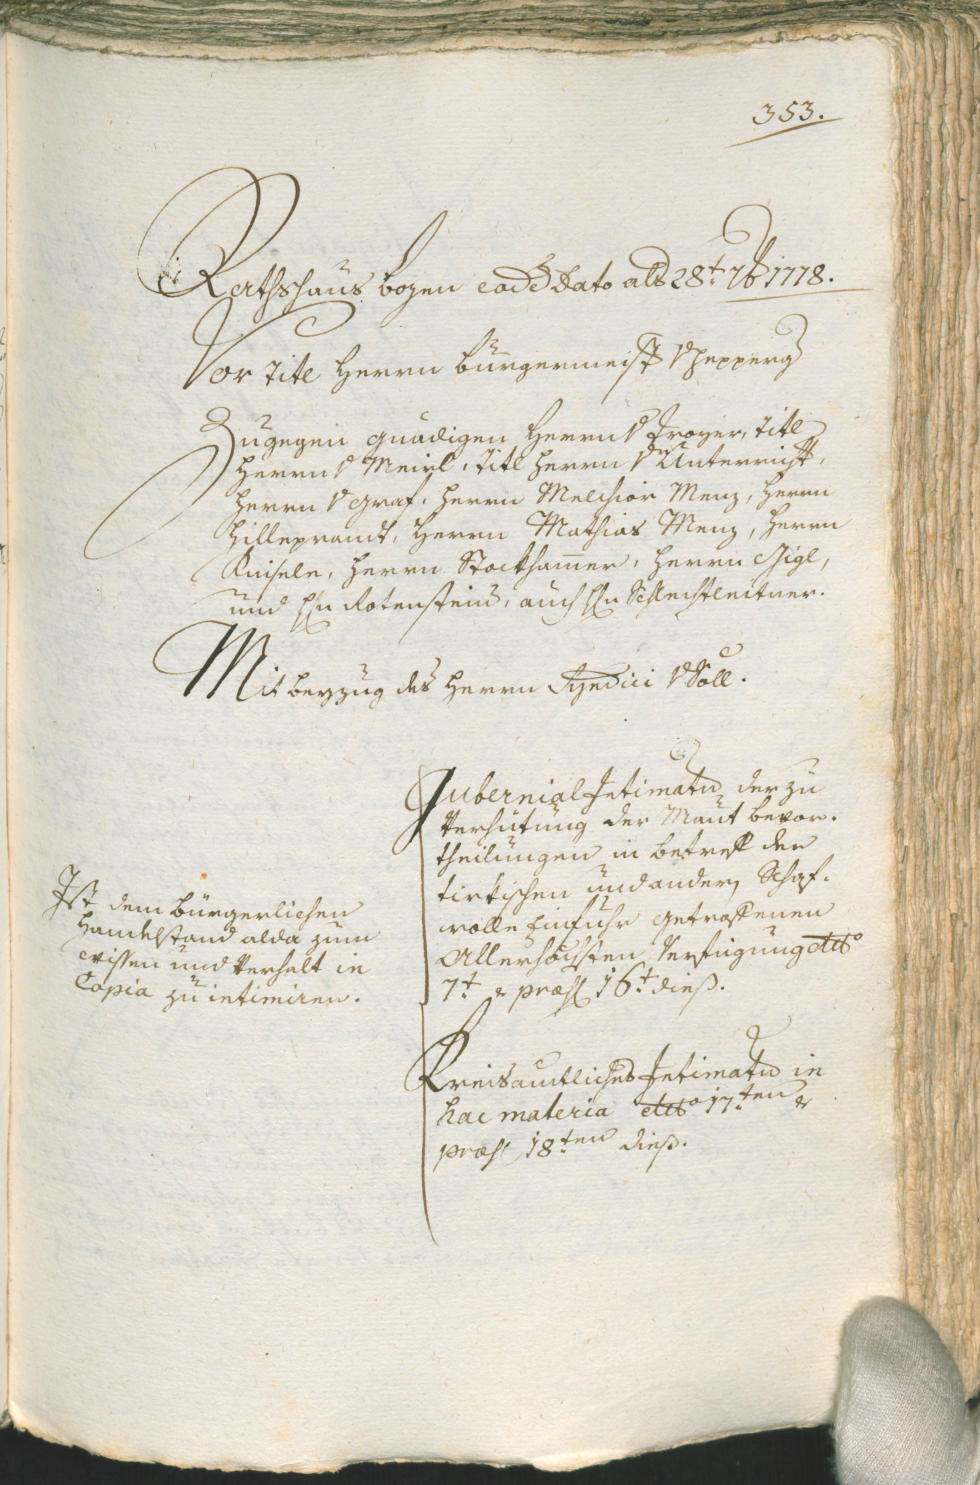 353.
Rathshaus bozen eod Dato als 28t. 7b 1778.
Vor Titl Herrn bürgermeist
Zugegen gnädigen Herrn v Troyer, Titl
Herrn v Meirl, Titl Herrn v Unterricht,
Herrn v Graf, Herrn Melchior Menz, Herrn
Hillepramdt, Herrn Mathias Menz, Herrn
Kniseln, Herrn Stockhamer, Herrn Gigl,
und H: Rotenstein, auch H: Schlechtleitner.
Mit beyzug des Herrn Syndici v Söll.
Gubernial Intimatu der zu
Verhütung der Maut bevor-
theilungen in betreff der
türkischen und andern Schaf-
wolle Einfuhr getroffenen
Allerhöchsten Verfügung dto
7t & præs 16t dieß.
Ist dem bürgerlichen
Handelstand alda zum
wissen und Verhalt in
Copia zu intimiren.
Kreisamtliches Intimatu in
hac materia dto 17ten &
præs 18ten dieß.